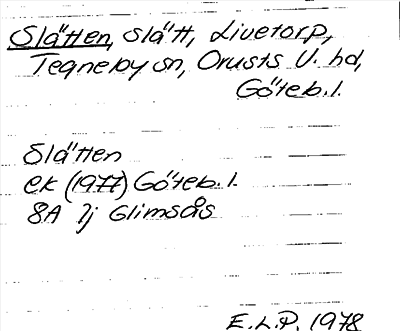 Slätten, slätt, Livetorp,
Tegneby sn, Orusts V. hd,
Göteb.l.
Slätten
ek (1977) Göteb.l.
8A 7j Glimsås
E.L.P. 1978